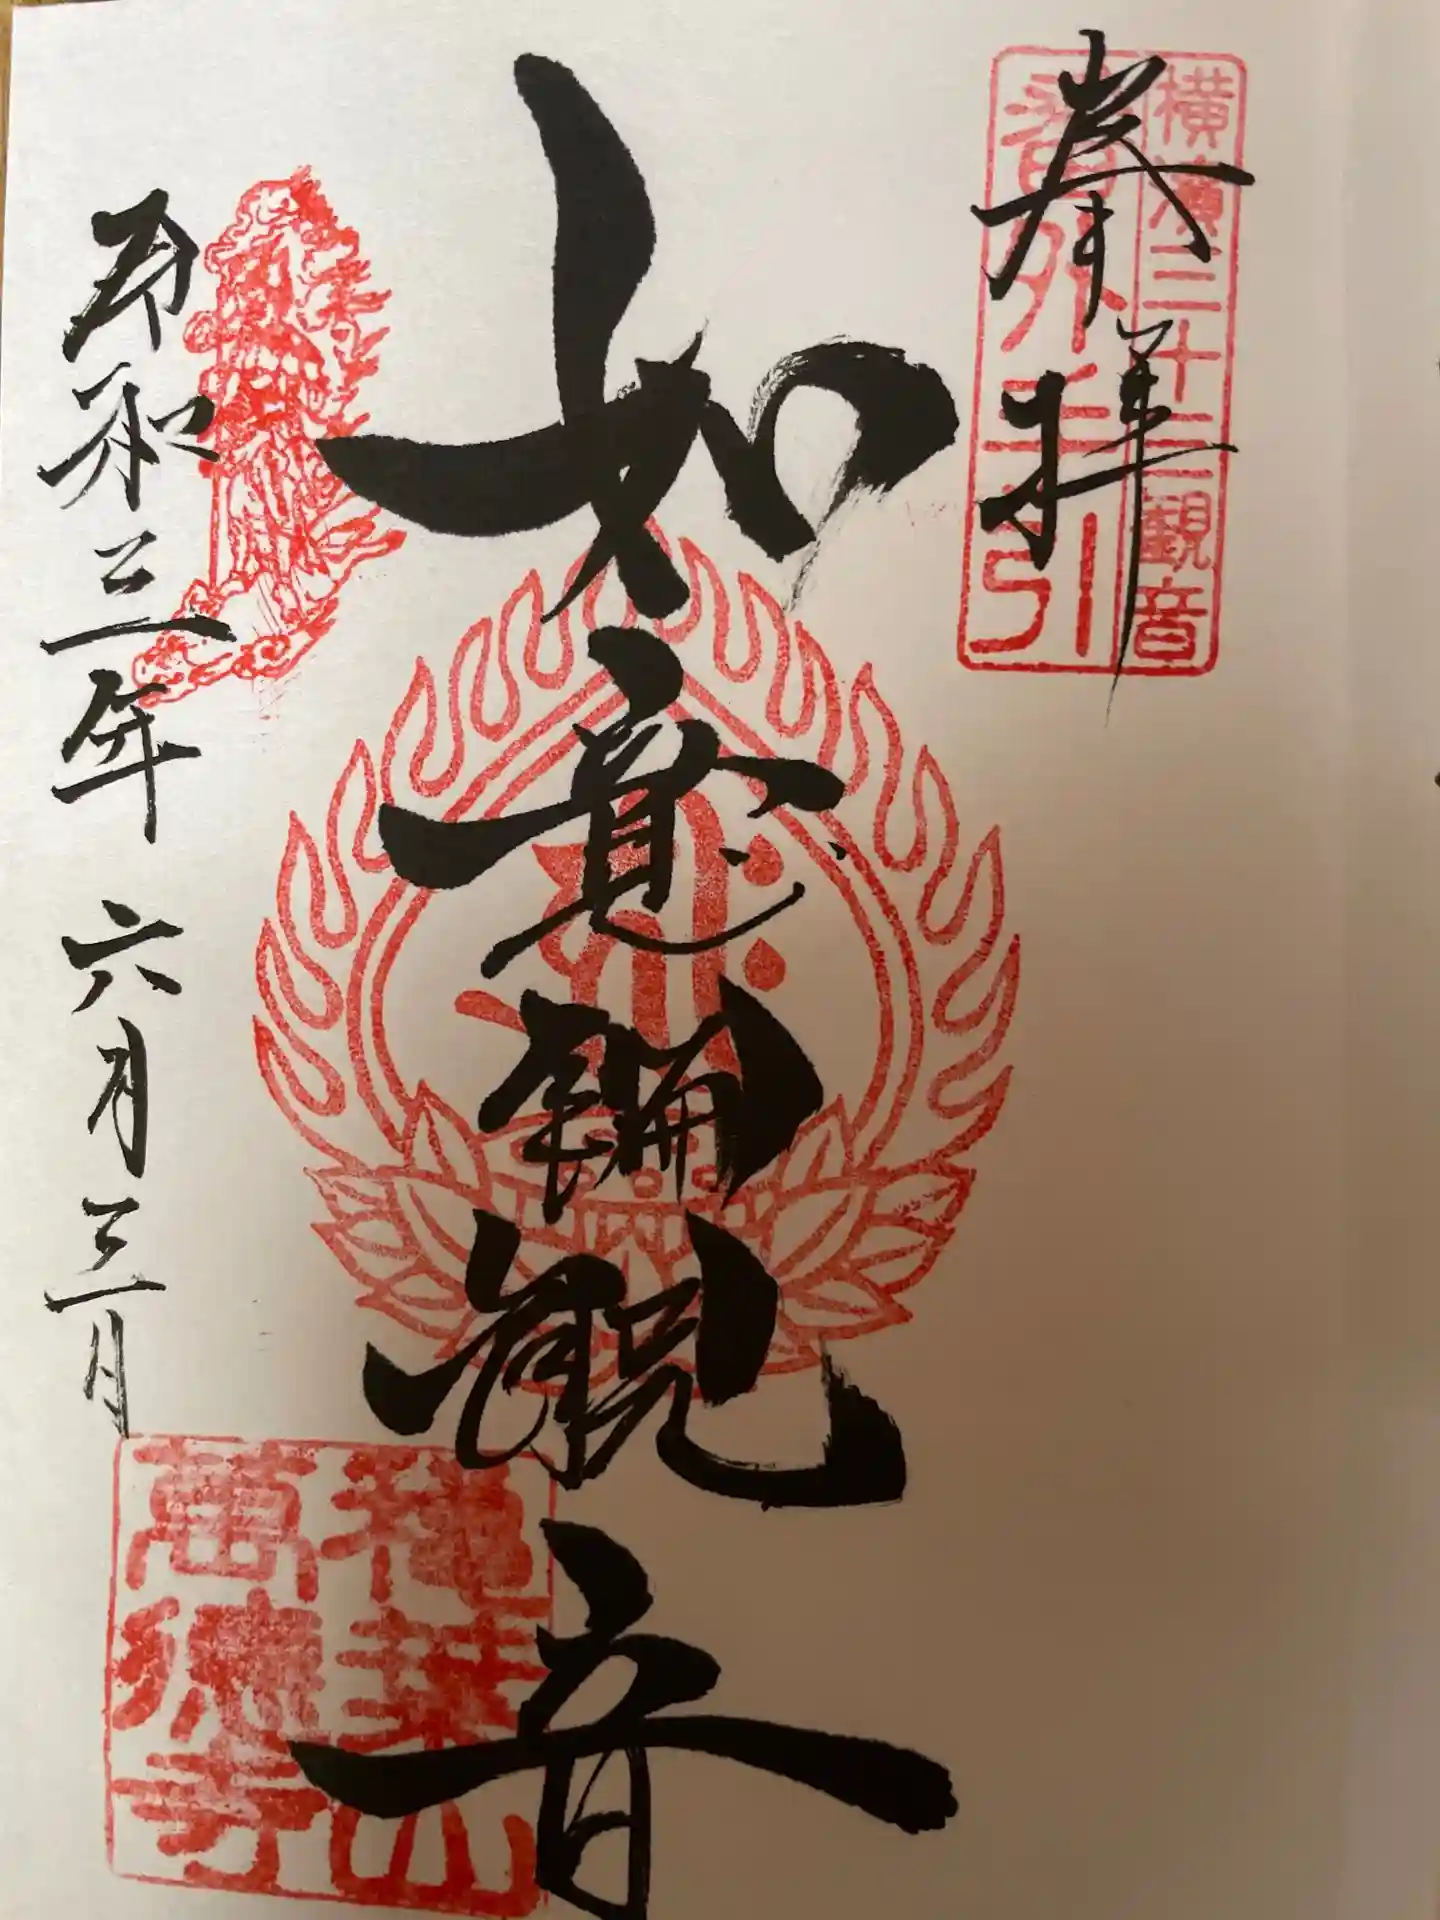 奉拝
横濱三十三観音
番外手引
如意輪観音
令和三年 六月三日
龍燈山
萬徳寺